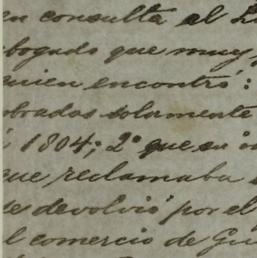 en consulta al
abogado que muy
quien encontró:
obradas solamente
1804; 2º que en
que reclamaba
se devolvió por el
el comercio de Gu